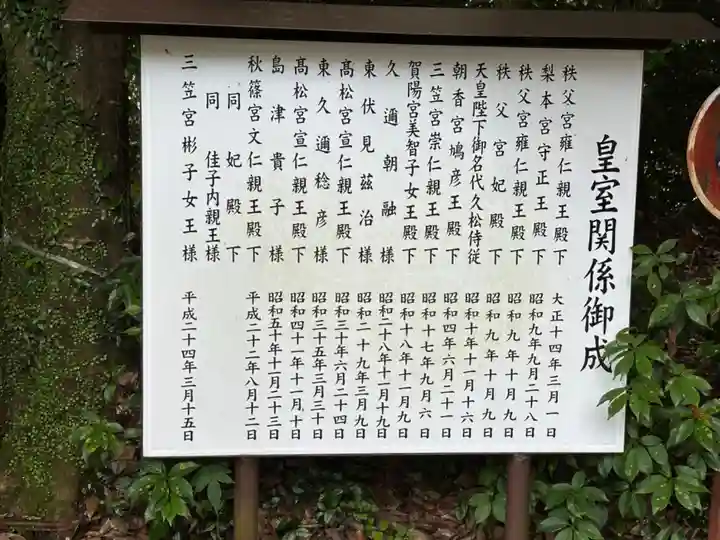 皇室関係御成
秩父宮雍仁親王殿下 大正十四年三月一日
梨本宮守正王殿下 昭和九年九月二十八日
秩父宮雍仁親王殿下 昭和九年十月九日
秩父宮妃殿下 昭和九年十月九日
天皇陛下御名代久松侍従 昭和十年十一月十六日
朝香宮鳩彦王殿下 昭和四年六月二十一日
三笠宮崇仁親王殿下 昭和十七年九月六日
賀陽宮美智子女王殿下 昭和十八年十一月九日
久邇朝融様 昭和二十八年十一月十九日
東伏見玆治様 昭和二十九年三月九日
高松宮宣仁親王殿下 昭和三十年六月二十四日
東久邇稔彦様 昭和三十五年三月三十日
高松宮宣仁親王殿下 昭和四十一年十一月十日
島津貴子様 昭和五十年十一月二十三日
秋篠宮文仁親王殿下 平成二十二年八月十二日
同妃殿下
同佳子内親王様
三笠宮彬子女王様 平成二十四年三月十五日